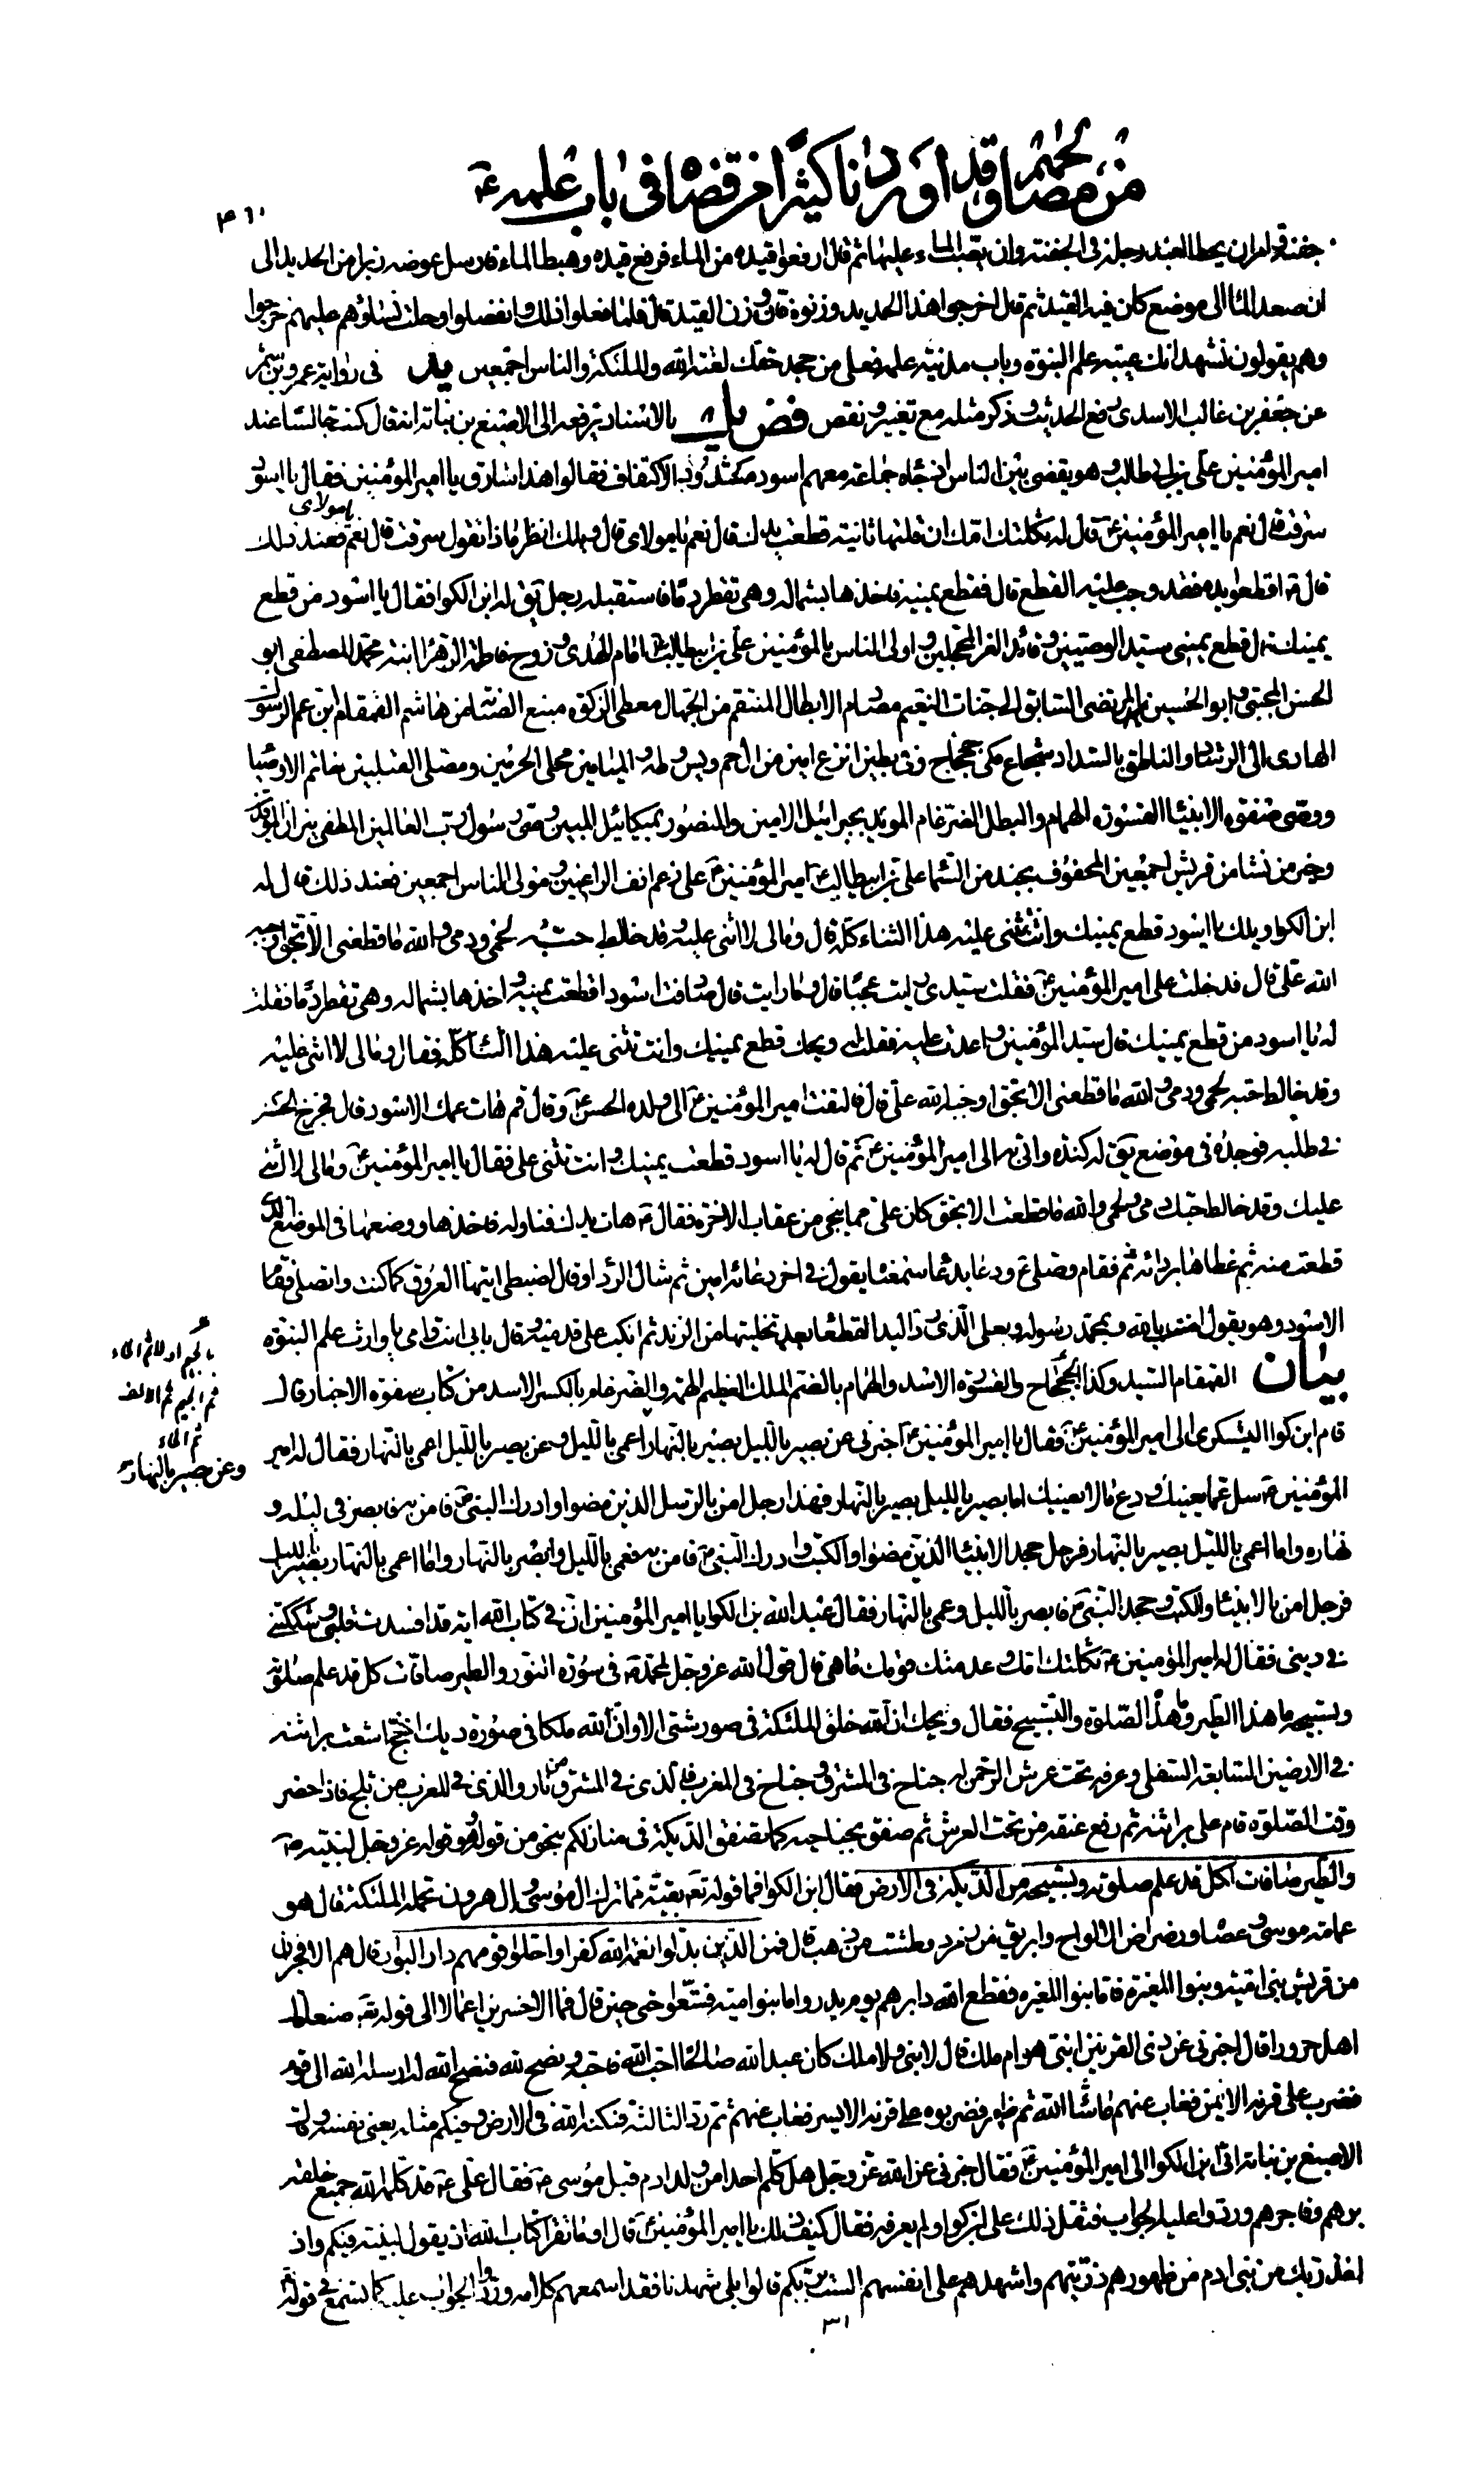 من مصالحهم وقد اوردنا كثيرا من قضاياه في باب علمه ع
٤٦٠
جفنة وامر ان يحط العبد رجله في الجفنة وان يصب الماء عليها ثم قال ارفعوا قيده من الماء فرفع قيده وهبط الماء فارسل عوضه زبرا من الحديد الى
ان صعد الماء الى موضع كان فيه القيد ثم قال اخرجوا هذا الحديد وزنوه فانه وزن القيد قال فلما فعلوا ذلك وانفصلوا وحلت نساؤهم عليهم خرجوا
وهم يقولون نشهد انك عيبة علم النبوة وباب مدينة علمه فعلى من جحد حقك لعنة الله والملئكة والناس اجمعين يل في رواية عمرو بن شمر
عن جعفر بن غالب الاسدي رفع الحديث وذكر مثله مع تغيير ونقص فض يل بالاسناد يرفعه الى الاصبغ بن نباتة انه قال كنت جالسا عند
امير المؤمنين علي بن ابي طالب وهو يقضي بين الناس اذ جاءه جماعة معهم اسود مشدود الاكتاف فقالوا هذا سارق يا امير المؤمنين فقال يا اسود
سرقت قال نعم يا امير المؤمنين ع قال له ثكلتك امك ان قلتها ثانية قطعت يدك قال نعم يا مولاي قال ويلك انظر ماذا تقول سرقت قال نعم يا مولاي فعند ذلك
قال ع اقطعوا يده فقد وجب عليه القطع قال فقطع يمينه فاخذها بشماله وهي تقطر دما فاستقبله رجل يق له ابن الكوا فقال يا اسود من قطع
يمينك قال قطع يميني سيد الوصيين وقائد الغر المحجلين واولى الناس بالمؤمنين علي بن ابيطالب ع امام الهدى وزوج فاطمة الزهراء ابنة محمد المصطفى ابو
الحسن المجتبى وابو الحسين المرتضى السابق الى جنات النعيم مصادم الابطال المنتقم من الجهال معطي الزكوة منيع الصيانة من هاشم القمقام ابن عم الرسول
الهادي الى الرشاد والناطق بالسداد شجاع مكي جحجاح وفي بطين انزع امين من آل حم ويس وطه والميامين محلي الحرمين ومصلي القبلتين خاتم الاوصياء
ووصي صفوة الانبياء القسورة الهمام والبطل الضرغام المؤيد بجبرائيل الامين والمنصور بميكائيل المبين وصي رسول رب العالمين المطفي نيران الموقدين
وخير من نشأ من قريش اجمعين المحفوف بجند من السماء علي بن ابيطالب ع امير المؤمنين ع على رغم انف الراغمين ومولى الناس اجمعين فعند ذلك قال له
ابن الكوا ويلك يا اسود قطع يمينك وانت تثني عليه هذا الثناء كله قال ومالي لا اثني عليه وقد خالط حبه لحمي ودمي والله ما قطعني الا بحق اوجبه
الله علي قال فدخلت على امير المؤمنين ع فقلت سيدي رايت عجبا قال وما رايت قال صادفت اسود قطعت يمينه واخذها بشماله وهي تقطر دما فقلت
له يا اسود من قطع يمينك قال سيد المؤمنين واعدت عليه فقلت له ويحك قطع يمينك وانت تثني عليه هذا الثناء كله فقال ومالي لا اثني عليه
وقد خالط حبه لحمي ودمي والله ما قطعني الا بحق اوجبه الله علي قال فالتفت امير المؤمنين ع الى ولده الحسن ع وقال قم هات عمك الاسود قال فخرج الحسن
في طلبه فوجده في موضع يق له كندة واتى به الى امير المؤمنين ع ثم قال له يا اسود قطعت يمينك وانت تثني علي فقال يا امير المؤمنين ع ومالي لا اثني
عليك وقد خالط حبك دمي ولحمي والله ما قطعت الا بحق كان علي مما ينجي من عقاب الاخرة فقال ع هات يدك فناوله فاخذها ووضعها في الموضع الذي
قطعت منه ثم غطاها بردائه ثم قام وصلى ع ودعا بدعاء سمعناه يقول في اخر دعائه امين ثم شال الرداء وقال اضبطي ايتها العروق كما كنت واتصلي فقام
الاسود وهو يقول امنت بالله وبمحمد رسوله وبعلي الذي رد اليد القطعاء بعد تخليتها من الزند ثم انكب على قدميه وقال بابي انت وامي يا وارث علم النبوة
بيان القمقام السيد وكذا الجحجاح والقسورة الاسد والهمام بالضم الملك العظيم الهمة والضرغام بالكسر الاسد من كتاب صفوة الاخبار قال
قام ابن كوا اليشكري الى امير المؤمنين ع فقال يا امير المؤمنين ع اخبرني عن بصير بالليل بصير بالنهار اعمى بالليل وعن بصير بالليل اعمى بالنهار فقال له امير
المؤمنين ع سل عما يعنيك ودع ما لا يعنيك اما بصير بالليل بصير بالنهار فهذا رجل امن بالرسل الذين مضوا وادرك النبي ص فامن به فابصر في ليله و
نهاره واما اعمى بالليل بصير بالنهار فرجل جحد الانبياء الذين مضوا والكتب وادرك النبي ص فامن به فعمي بالليل وابصر بالنهار واما اعمى بالنهار بصير بالليل
فرجل امن بالانبياء والكتب وجحد النبي ص فابصر بالليل وعمي بالنهار فقال عبد الله بن الكوا يا امير المؤمنين ان في كتاب الله اية قد افسدت قلبي وشككتني
في ديني فقال له امير المؤمنين ع ثكلتك امك وعدمتك قومك ما هي قال قول الله عز وجل لمحمد ص في سورة النور والطير صافات كل قد علم صلوته
وتسبيحه ما هذا الطير وما هذا الصلوة والتسبيح فقال ويحك ان الله خلق الملئكة في صور شتى الا وان لله ملكا في صورة ديك ابح اشعث براثنه
في الارضين السابعة السفلى وعرفه تحت عرش الرحمن له جناح في المشرق وجناح في المغرب فالذي في المشرق من نار والذي في المغرب من ثلج فاذا حضر
وقت الصلوة قام على براثنه ثم رفع عنقه من تحت العرش ثم صفق بجناحيه كما تصفق الديكة في منازلكم بنحو من قوله وهو قوله عز وجل لنبيه ص
والطير صافات كل قد علم صلوته وتسبيحه من الديكة في الارض فقال ابن الكوا فما قوله تع بقية مما ترك ال موسى وال هرون تحمله الملئكة قال هو
عمامة موسى وعصاه ورضراض الالواح وابريق من زمرد وطشت من ذهب قال فمن الذين بدلوا نعمة الله كفرا واحلوا قومهم دار البوار قال هم الافجران
من قريش بني امية وبنو المغيرة فاما بنوا المغيرة فقطع الله دابرهم يوم بدر واما بنوا امية فمتعوا حتى حين قال فما الاخسرين اعمالا الى قوله تع صنعا قال
اهل حرورا قال اخبرني عن ذي القرنين انبي هو ام ملك قال لا نبي ولا ملك كان عبد الله صالحا احب الله فاحبه ونصح لله فنصح الله له ارسله الله الى قوم
فضرب على قرنه الايمن فغاب عنهم ما شاء الله ثم ظهر فضربوه على قرنه الايسر فغاب عنهم ثم رد الثالثة فمكنه الله في الارض وفيكم مثله يعني نفسه وقال
الاصبغ بن نباتة اتى ابن الكوا الى امير المؤمنين ع فقال خبرني عن الله عز وجل هل كلم احدا من ولد ادم قبل موسى ع فقال علي ع قد كلم الله جميع خلقه
برهم وفاجرهم وردوا عليه الجواب فثقل ذلك على ابن كوا ولم يعرفه فقال كيف ذلك يا امير المؤمنين ع قال او ما تقرا كتاب الله اذ يقول لنبيه فيكم واذ
اخذ ربك من بني ادم من ظهورهم ذريتهم واشهدهم على انفسهم الست بربكم قالوا بلى شهدنا فقد اسمعهم كلامه وردوا الجواب عليه كما تسمع في قوله
بالجيم اولا ثم الحاء
ثم الجيم ثم الالف
ثم الحاء
وعن بصير بالنهار
٣١